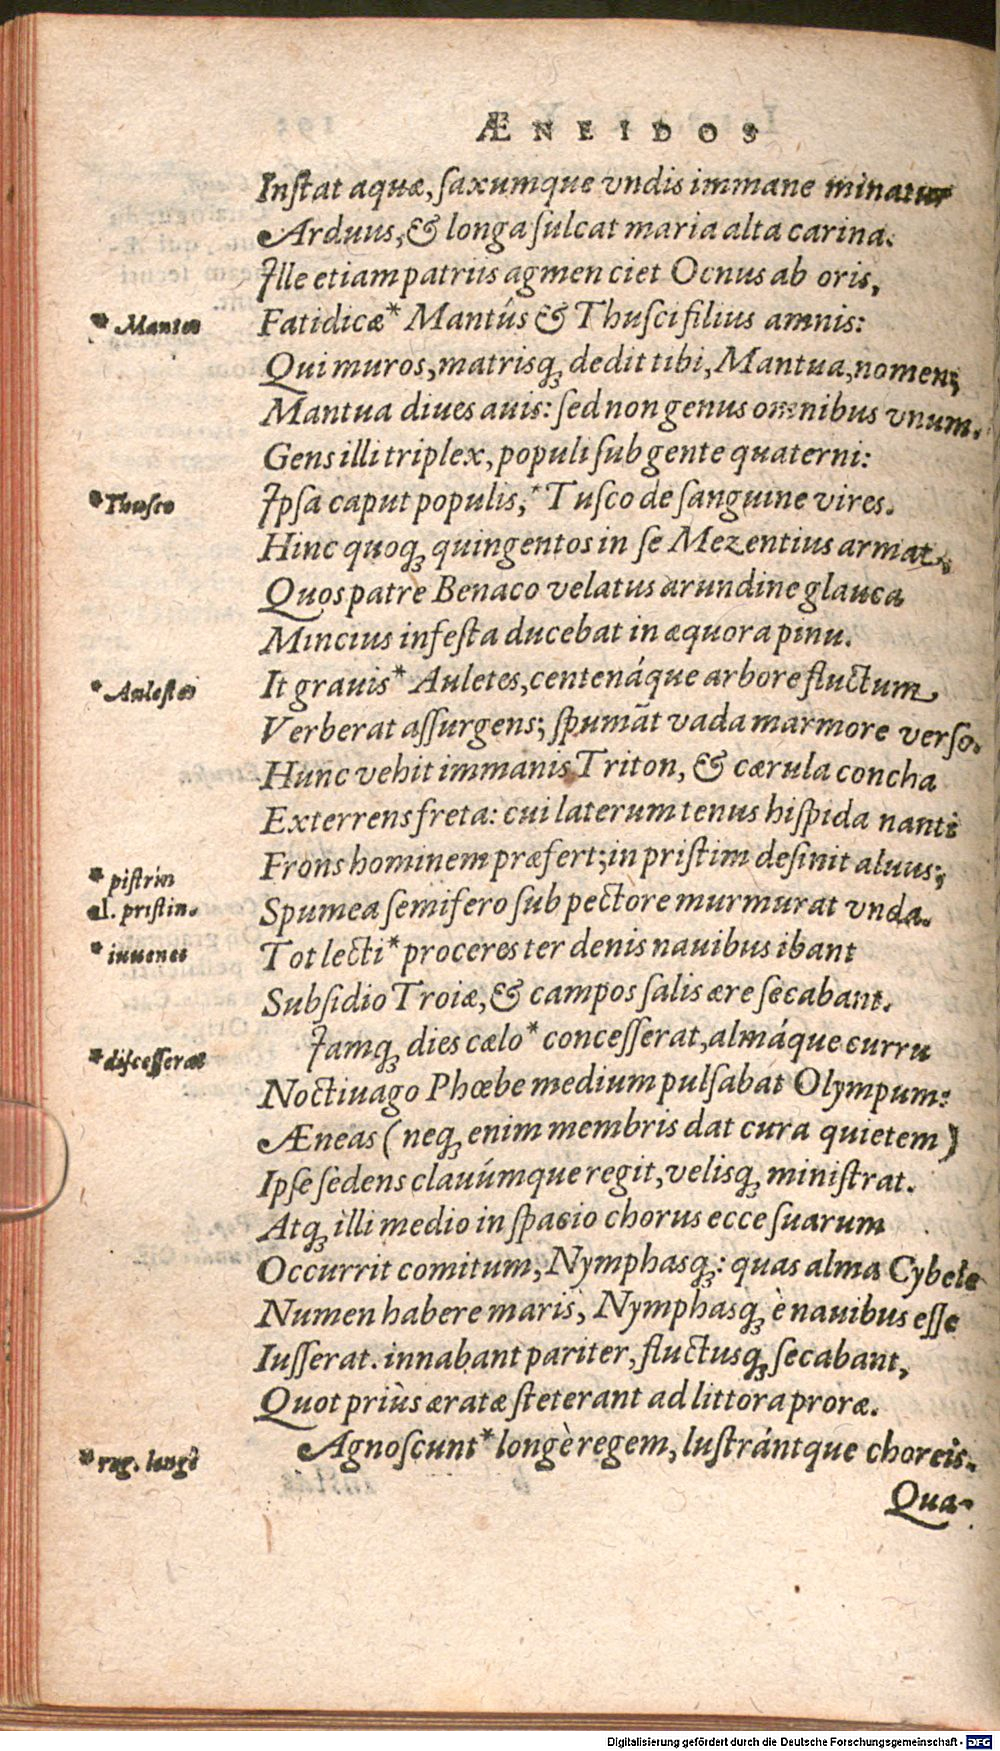 ÆNEIDOS
Instat aquæ, saxumque vndis immane minatur
Arduus, & longa sulcat maria alta carina.
Ille etiam patriis agmen ciet Ocnus ab oris,
* Mantos
Fatidicæ* Mantûs & Thusci filius amnis:
Qui muros, matrisq; dedit tibi, Mantua, nomen;
Mantua diues auis: sed non genus omnibus vnum.
Gens illi triplex, populi sub gente quaterni:
* Thusco
Ipsa caput populis,* Tusco de sanguine vires.
Hinc quoq; quingentos in se Mezentius armat,
Quos patre Benaco velatus arundine glauca
Mincius infesta ducebat in æquora pinu.
* Aulestes
It grauis* Auletes, centenáque arbore fluctum
Verberat assurgens; spumāt vada marmore verso.
Hunc vehit immanis Triton, & cærula concha
Exterrens freta: cui laterum tenus hispida nanti
* pistrin
Frons hominem præfert; in pristim desinit aluus;
al. pristin.
Spumea semifero sub pectore murmurat vnda.
* iuuenes
Tot lecti* proceres ter denis nauibus ibant
Subsidio Troiæ, & campos salis ære secabant.
* discesserat
Iamq; dies cælo* concesserat, almáque curru
Noctiuago Phœbe medium pulsabat Olympum:
Æneas (neq; enim membris dat cura quietem)
Ipse sedens clauúmque regit, velisq; ministrat.
Atq; illi medio in spacio chorus ecce suarum
Occurrit comitum, Nymphasq;: quas alma Cybele
Numen habere maris, Nymphasq; è nauibus esse
Iusserat. innabant pariter, fluctusq; secabant,
Quot priùs æratæ steterant ad littora proræ.
* reg. longè
Agnoscunt* longè regem, lustrántque choreis.
Qua-
Digitalisierung gefördert durch die Deutsche Forschungsgemeinschaft - DFG